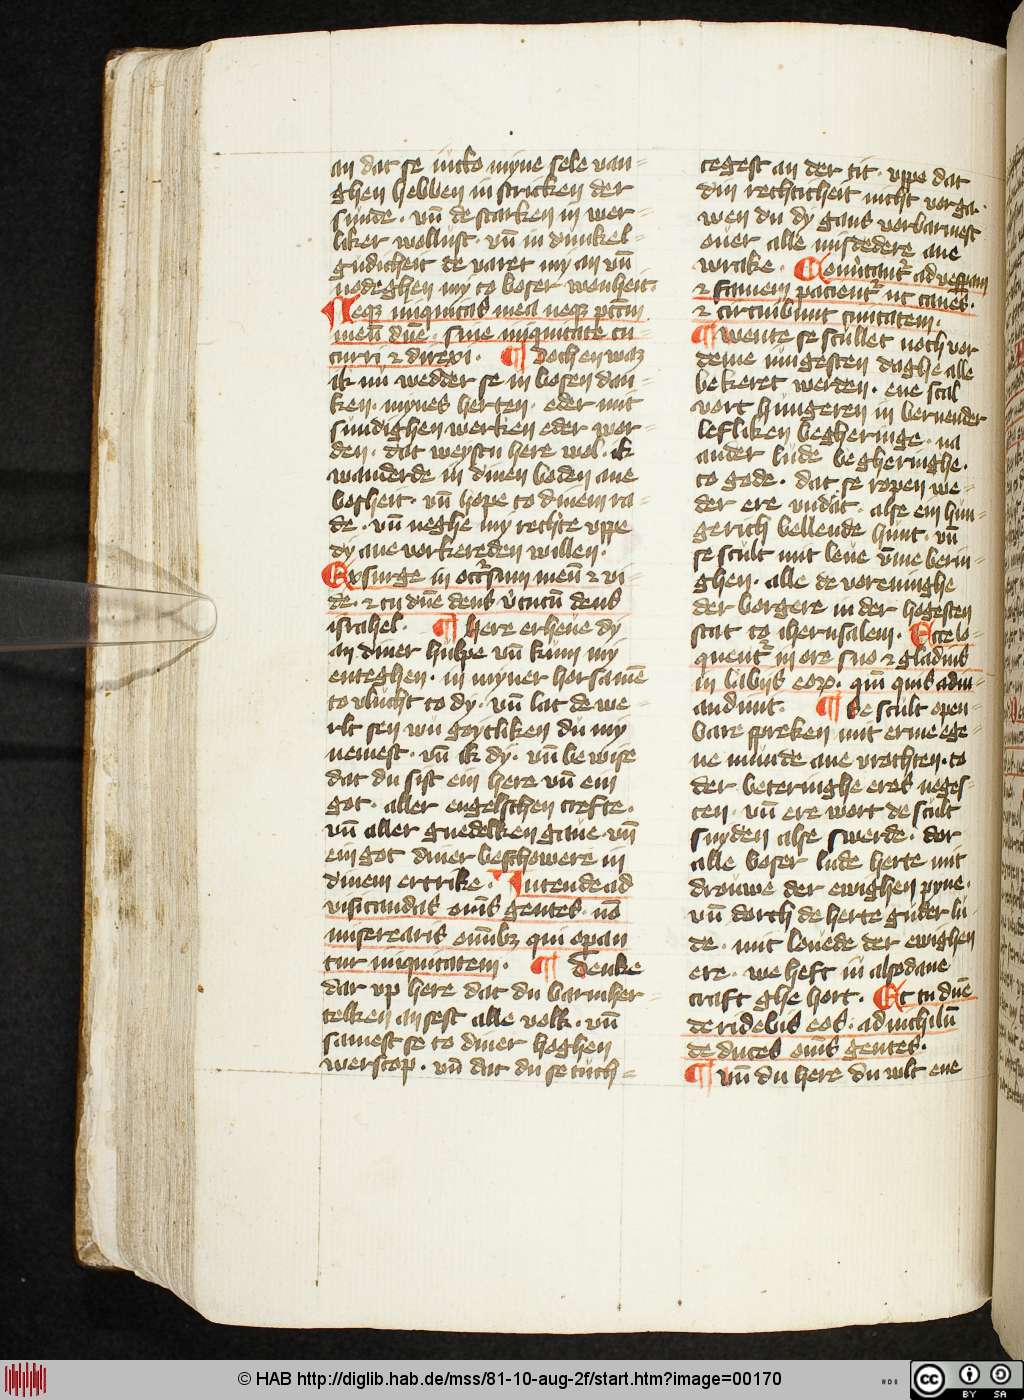 an dat se iucko myne sele van=
ghen hebben in stricken der
sunde · vn̄ de starken in wer=
liker wollust · vn̄ in dunkel=
gudicheit de varet my an vn̄
nodeghen my to boser wonheit·
Neqꝫ iniquitas mea neqꝫ pctm̄
meū dn̄e · sine iniquitate cu
curri ⁊ direxi · ¶ Doch en waꝫ
ik nu wedder se in bosen dan=
ken · mynes herten · eder mit
sundighen werken eder wor=
den · dat weystu here wol · ik
wanderde in dinen boden ane
bosheit · vn̄ hope to dinem ra=
de · vn̄ neghe my rechte vppe
dy ane vorkereden willen ·
Exsurge in occ̄sum meū ⁊ vi=
de · ⁊ tu dn̄e deus v̓tutū deus
israhel · ¶ here erheue dy
an diner hulpe vn̄ kum my
enteghen · in myner horsamē
to vlucht to dy · vn̄ lat de we=
rlt sen wu goytliken du my
nemest · vn̄ ik dy · vn̄ bewise
dat du sist ein here vn̄ ein
got · aller engelschen crefte ·
vn̄ aller guedelken gaue · vn̄
ein got diner beschowere in
dinem ertrike · Intende ad
visitandas oms̄ gentes · nō
miserearis om̄ibꝫ qui operan
tur iniquitatem · ¶ Denke
dar vp here dat du barmher=
telken ansest alle volk · vn̄
samest se to diner hoghen
werscop · vn̄ dat du se tuch=
tegest an der tit · vppe dat
din rechticheit nicht vorga·
wen du dy gans vorbarnest
ouer alle misdedere ane
wrake · Conu̓tant̉ ad vesperam
⁊ famem pacient̉ ut canes ·
⁊ circuibunt ciuitatem ·
¶ Wente se scullet noch vor
deme iungesten daghe alle
bekeret werden · ene scal
vort hungeren in bernender
lefliken begheringe · na
ander lude begheringhe ·
to gode · dat se ropen we=
der ere vndat · alse ein hun=
gerich bellende hunt · vn̄
se scult mit leue v̄me berin=
ghen · alle de voreninghe
der borgere in der hogesten
stat to iherusalem · Ecce lo=
quent̉ in ore suo ⁊ gladius
in labiis eoꝝ · qm̄ quis adiu=
audiuit · ¶ Se scult open=
bare spreken mit erme ege=
ne munde ane vrochten · to
der beteringhe eres neges=
ten · vn̄ ere wort de scult
snyden alse swerde · dor
alle boser lude herte mit
drouwe der ewighen pyne ·
vn̄ dorch de herte guder lu=
de · mit louede der ewighen
ere · we heft iu alsodane
craft ghe hort · Et tu dn̄e
deridebis eos · ad nichilū
deduces oms̄ gentes ·
¶ Vn̄ du here du wlt ene
© HAB http://diglib.hab.de/mss/81-10-aug-2f/start.htm?image=00170
cc BY SA